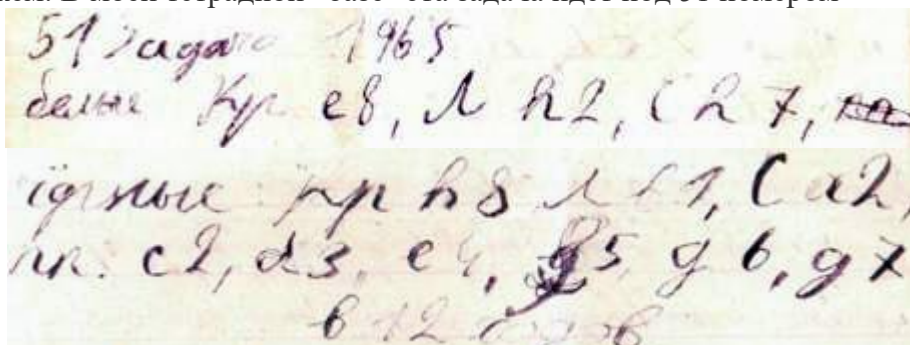 51 задача 1965
белые Кр e8, Л h2, С h7,
чёрные Кр h8 Л 1, С a2,
пп. c2, d3, e4, 5, g6, g7
в 12 ходов